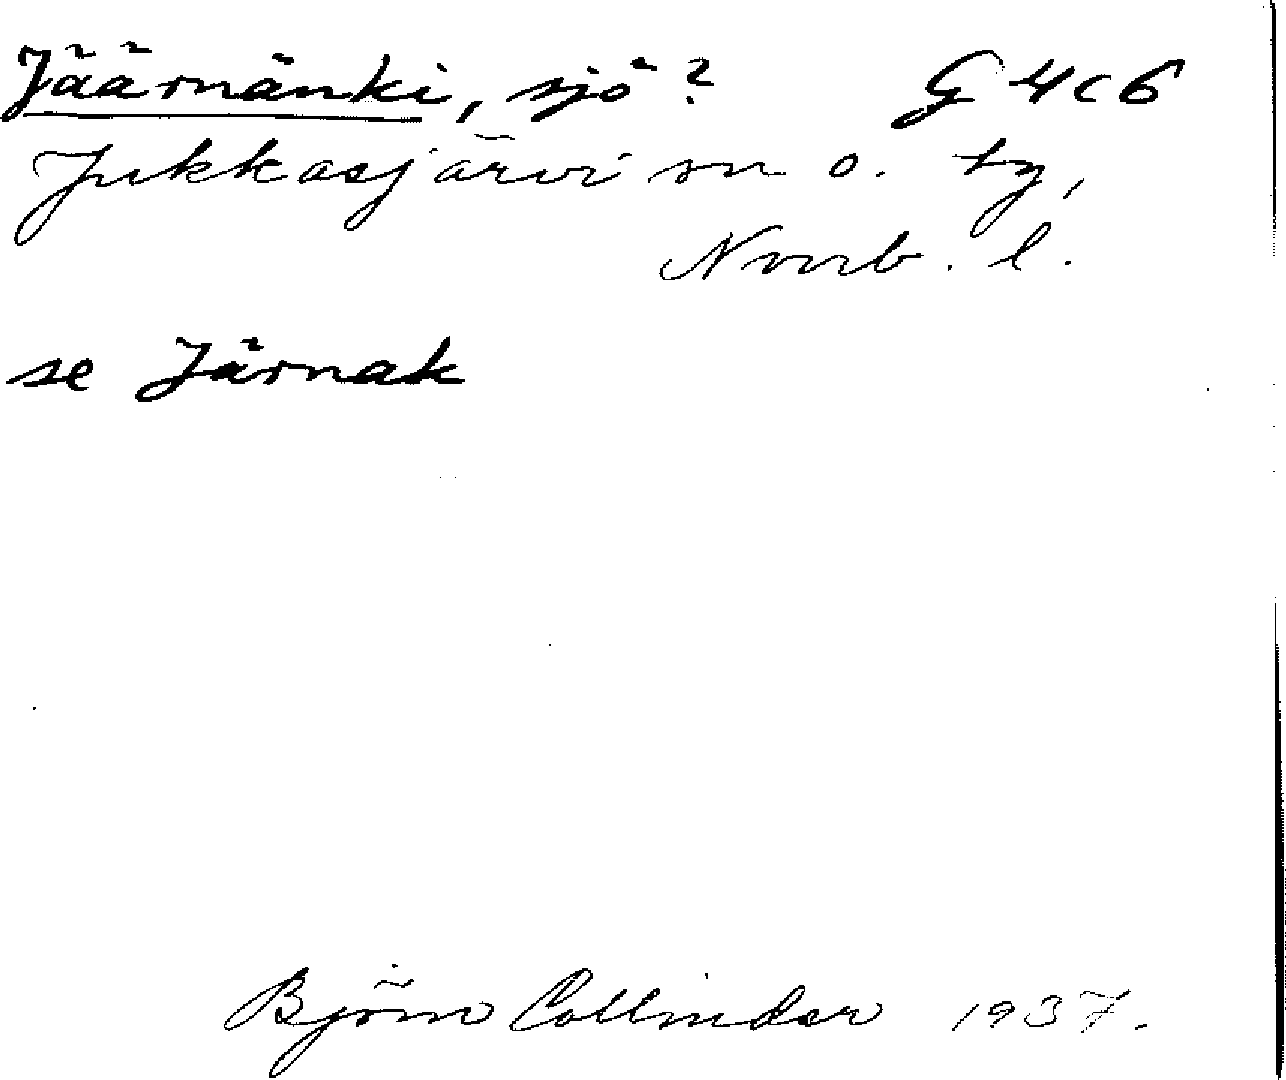 Jäärnänki, sjö? G 4c6
Jukkasjärvi sn o. tg,
Norrb. l.
se Järnak
Björn Collinder 1937.